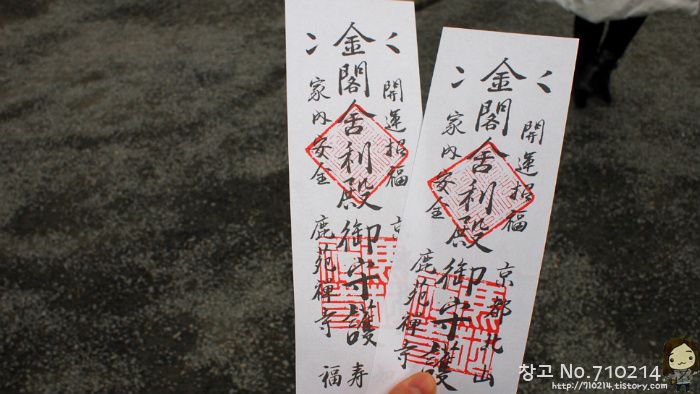 開運招福
金閣舍利殿御守護
家内安全
鹿苑禅寺
寿
福
開運招福
京都北山
金閣舍利殿御守護
家内安全
鹿苑禅寺
창고 No.710214
http://710214.tistory.com